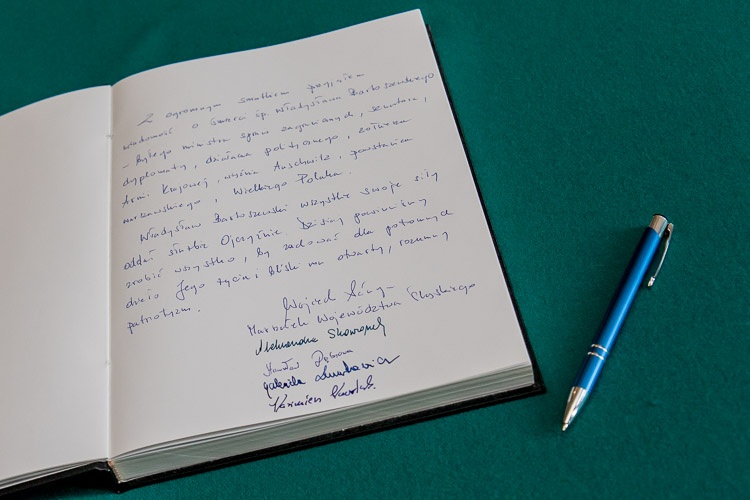 Z ogromnym smutkiem przyjąłem
wiadomość o śmierci śp. Władysława Bartoszewskiego
- byłego ministra spraw zagranicznych, senatora,
dyplomaty, działacza politycznego, żołnierza
Armii Krajowej, więźnia Auschwitz, powstańca
warszawskiego, Wielkiego Polaka.
Władysław Bartoszewski wszystkie swoje siły
oddał służbie Ojczyźnie. Dzisiaj powinniśmy
zrobić wszystko, by zachować dla potomnych
dzieło Jego życia i bliski mu otwarty, rozumny
patriotyzm.
Wojciech
Marszałek Województwa Śląskiego
Aleksandra Skowronek
Stanisław Dąbrowa
Gabriela
Kazimierz